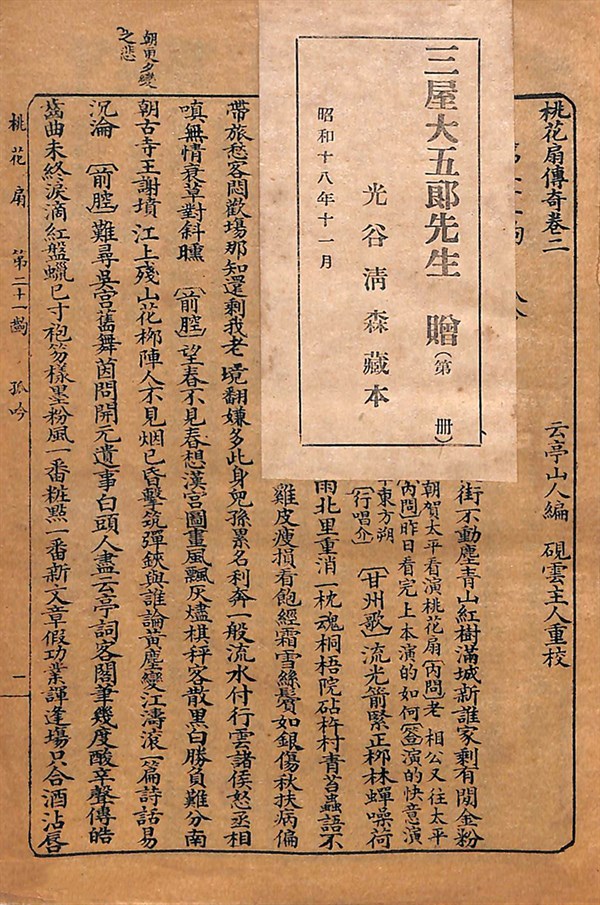 桃花扇傳奇卷二 云亭山人編 硯雲主人重校
三屋大五郎先生 贈(第 冊)
光谷清森藏本
昭和十八年十一月
街不動塵青山紅樹滿城新誰家剩有閒金粉
朝賀太平看演桃花扇〔內問〕老相公又往太平
〔內問〕昨日看完上本演的如何〔答〕演的快意演
東方朔
〔行唱介〕〔甘州歌〕流光箭緊正柳林蟬噪荷
雨北里重消一枕魂桐梧院砧杵村青苔蟲語不
雞皮瘦損看飽經霜雪絲鬢如銀傷秋扶病偏
帶旅愁客悶歡場那知還剩我老境翻嫌多此身兒孫累名利奔一般流水付行雲諸侯怒丞相
嗔無情衰草對斜曛〔前腔〕望春不見春想漢宮圖畫風飄灰燼棋枰客散黑白勝負難分南
朝古寺王謝墳江上殘山花柳陣人不見烟已昏擊筑彈鋏與誰論黃塵變江濤滾一篇詩話易
沉淪〔前腔〕難尋吳宮舊舞茵問開元遺事白頭人盡云亭詞客閣筆幾度酸辛聲傳皓
齒曲未終淚滴紅盤蠟已寸袍笏樣墨粉風一番粧點一番新文章假功業諢逢場只合酒沾唇
朝更夕變
之悲
桃花扇 第二十一齣 孤吟 一